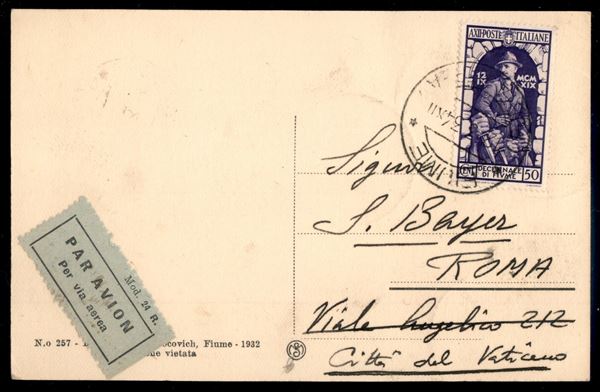 A.XII-POSTE ITALIANE
12
IX
MCM
XIX
DECENNALE
DI FIUME
50
FIUME
Signor
S. Bayer
ROMA
Viale Angelico 212
Città del Vaticano
Mod. 24 R.
PAR AVION
Per via aerea
N.o 257 - ocovich, Fiume - 1932
vietata